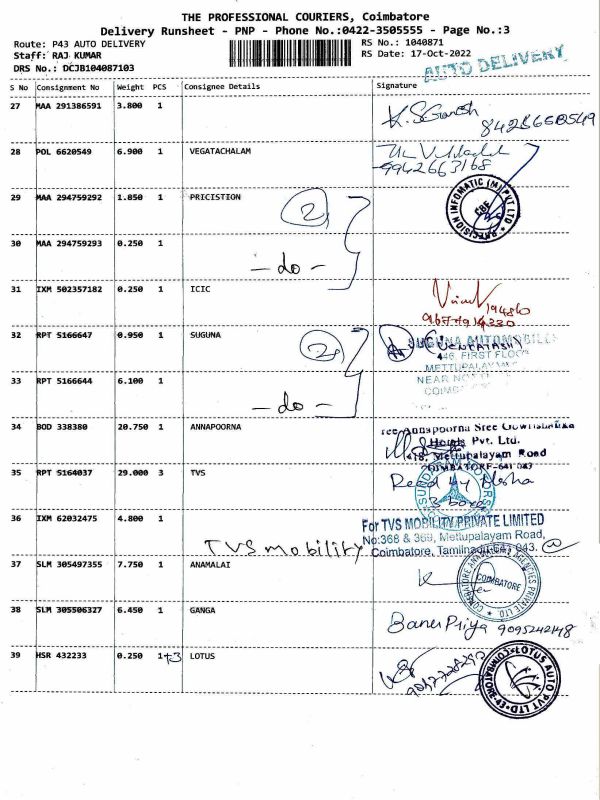 THE PROFESSIONAL COURIERS, Coimbatore
Delivery Runsheet - PNP - Phone No.:0422-3505555 - Page No.:3
Route: P43 AUTO DELIVERY RS No.: 1040871
Staff: RAJ KUMAR RS Date: 17-Oct-2022
DRS No.: DCJB104087103 AUTO DELIVERY
S No Consignment No Weight PCS Consignee Details Signature
27 MAA 291386591 3.800 1
28 POL 6620549 6.900 1 VEGATACHALAM
9942663168
29 MAA 294759292 1.850 1 PRICISTION 2
PRECISION INFOMATIC (M) PVT LTD
CBE
30 MAA 294759293 0.250 1 - do -
31 IXM 502357182 0.250 1 ICIC
32 RPT 5166647 0.950 1 SUGUNA 2
SUGUNA AUTOMOBILES
446, FIRST FLOOR
METTUPALAYAM
33 RPT 5166644 6.100 1 - do -
NEAR
34 BOD 338380 20.750 1 ANNAPOORNA
Sree Annapoorna Sree Gowrishankar
Hotels Pvt. Ltd.
418, Mettupalayam Road
COIMBATORE-641 043
35 RPT 5164037 29.000 3 TVS
3 boxes
36 IXM 62032475 4.800 1 TVS mobility
For TVS MOBILITY PRIVATE LIMITED
No:368 & 369, Mettupalayam Road,
Coimbatore, Tamilnadu
37 SLM 305497355 7.750 1 ANAMALAI
COIMBATORE
38 SLM 305506327 6.450 1 GANGA
Priya 9095242148
39 HSR 432233 0.250 1+3 LOTUS
LOTUS AUTO PVT LTD